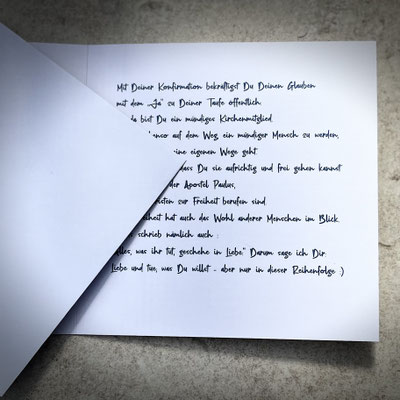 Mit Deiner Konfirmation bekräftigst Du Deinen Glauben
mit dem „Ja" zu Deiner Taufe öffentlich.
da bist Du ein mündiges Kirchenmitglied.
auf dem Weg, ein mündiger Mensch zu werden,
eigenen Wege geht.
dass Du sie aufrichtig und frei gehen kannst
der Apostel Paulus,
zur Freiheit berufen sind.
hat auch das Wohl anderer Menschen im Blick.
schrieb nämlich auch :
was ihr tut, geschehe in Liebe." Darum sage ich Dir:
Liebe und tue, was Du willst - aber nur in dieser Reihenfolge :)